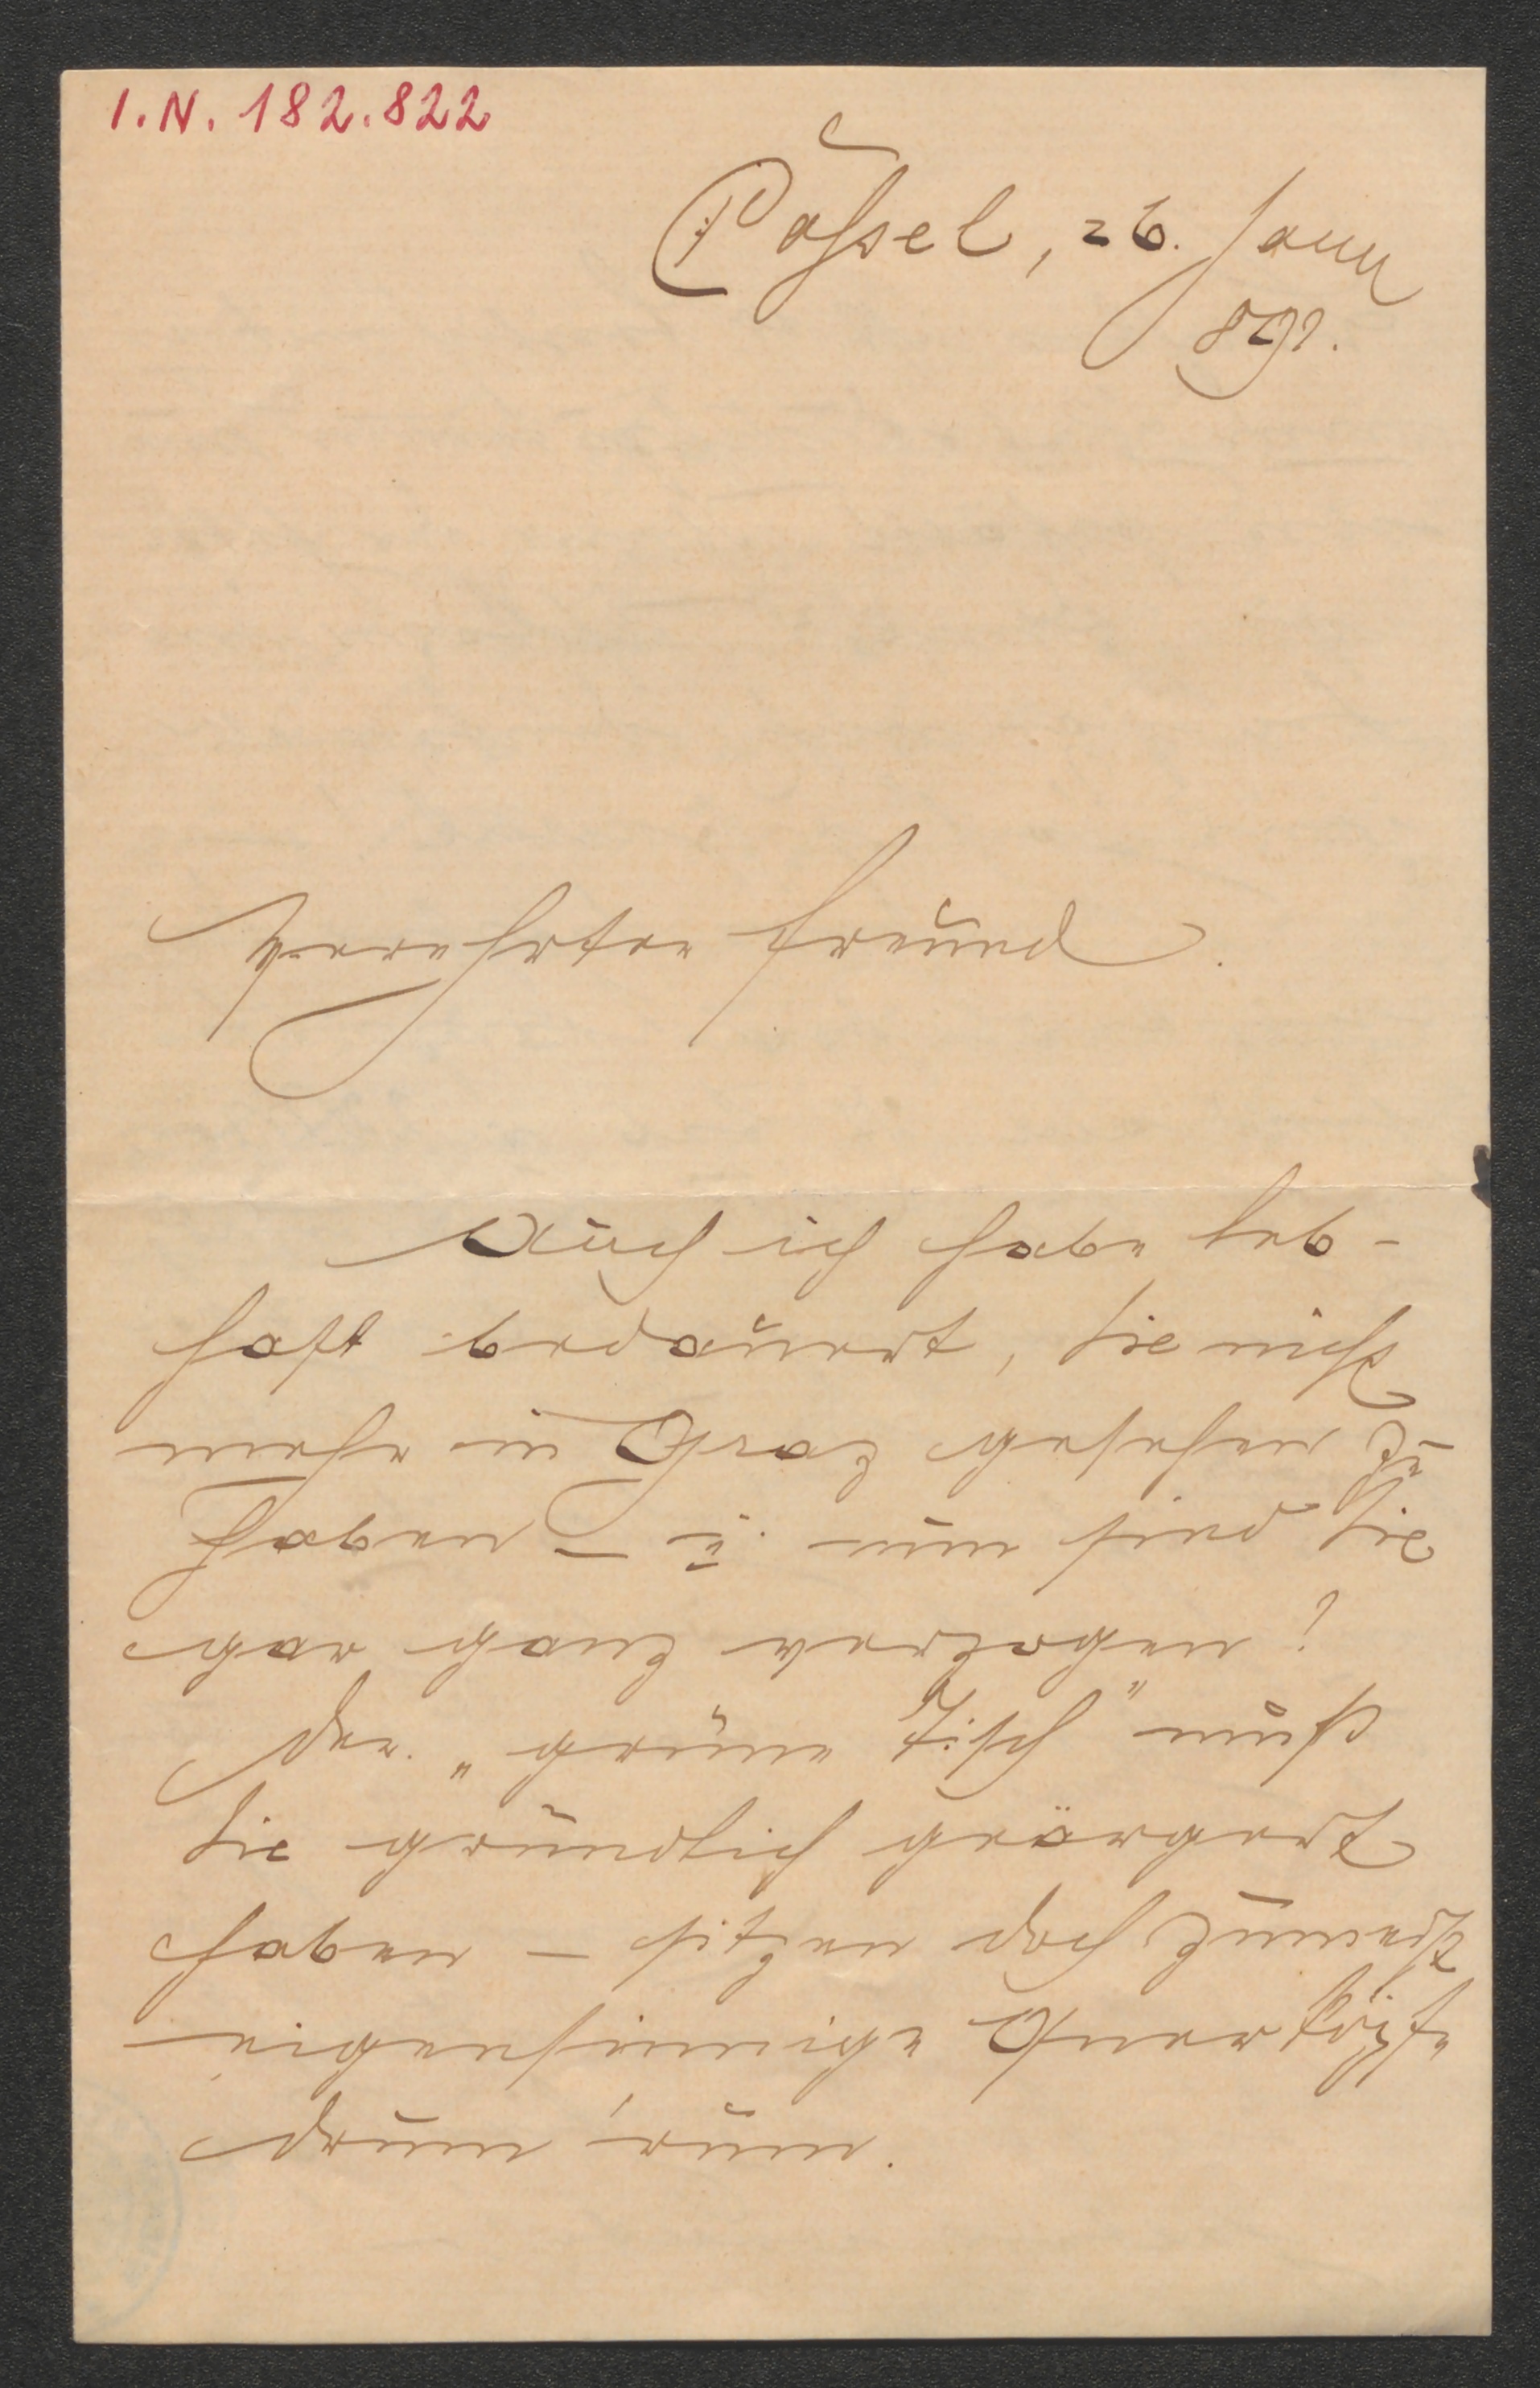 I.N. 182.822
Cassel, 26. Jann
891.
Verehrter Freund.
Auch ich habe leb-
haft bedauert, Sie nicht
mehr in Graz gesehen zu
haben – u. nun sind Sie
gar ganz verzogen!
Der „grüne Tisch" muß
Sie gründlich geärgert
haben – sitzen doch zumeist
eigensinnige Querköpfe
drum 'rum.